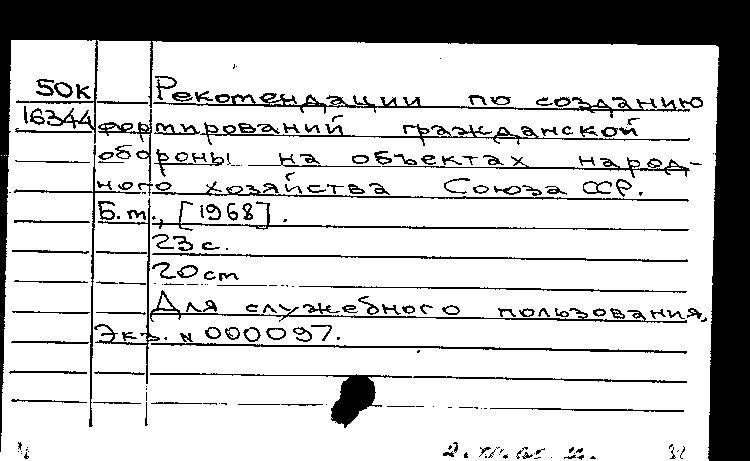 50к Рекомендации по созданию
16344 формирований гражданской
обороны на объектах народ-
ного хозяйства Союза ССР.
Б.м., [1968].
23 с.
20 cm
Для служебного пользования,
Экз. N 000097.